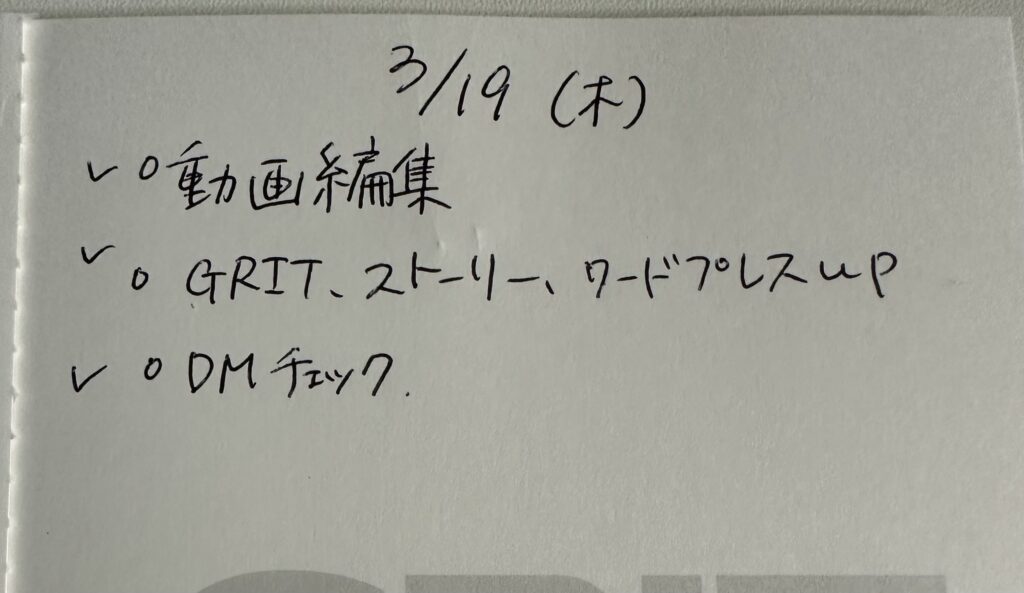 3/19 (木)
✓ ○ 動画編集
✓ ○ GRIT、ストーリー、ワードプレスup
✓ ○ DMチェック.
GRIT